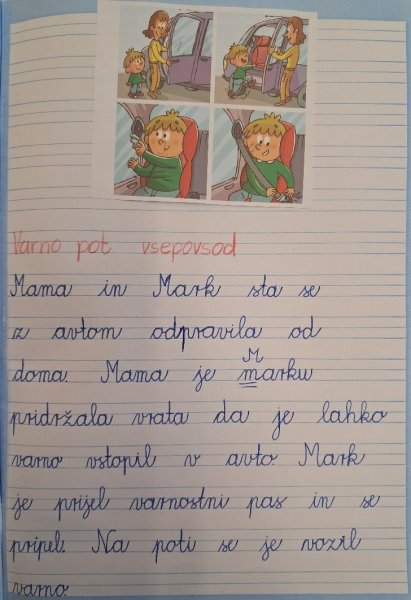 Varno pot vsepovsod
Mama in Mark sta se
z avtom odpravila od
doma. Mama je marku
M
pridržala vrata da je lahko
varno vstopil v avto. Mark
je prijel varnostni pas in se
pripel. Na poti se je vozil
varno.